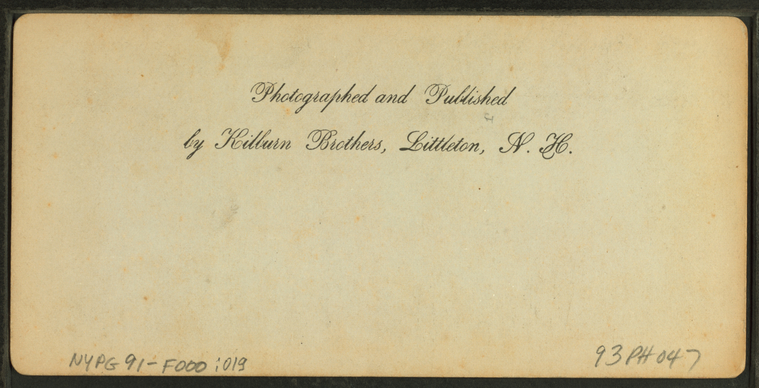 Photographed and Published
by Kilburn Brothers, Littleton, N. H.
NYPG 91-F000 :019
93PH047